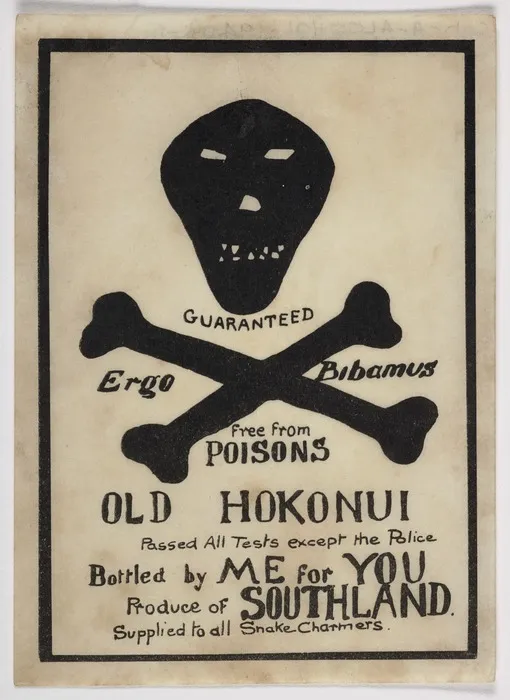 GUARANTEED
Ergo Bibamus
Free from
POISONS
OLD HOKONUI
Passed All Tests except the Police
Bottled by ME for YOU
Produce of SOUTHLAND.
Supplied to all Snake Charmers.